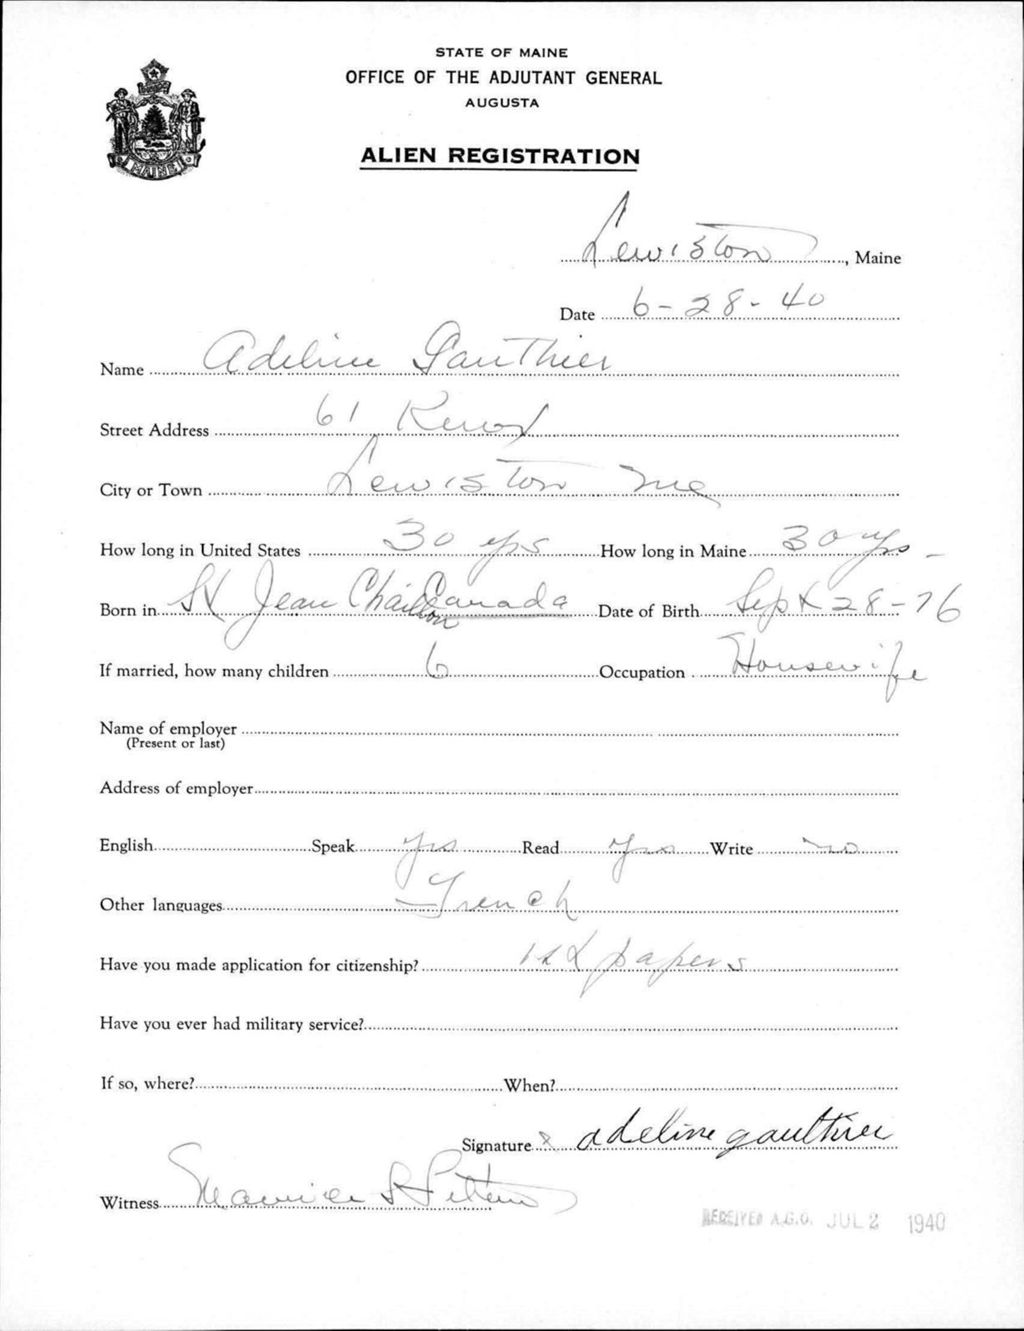 STATE OF MAINE
OFFICE OF THE ADJUTANT GENERAL
AUGUSTA
MAINE
ALIEN REGISTRATION
Lewiston, Maine
Date 6-28-40
Name Adeline Gauthier
Street Address 61 Knox
City or Town Lewiston Me
How long in United States 30 yrs How long in Maine 30 yrs -
Born in St Jean Chaillon Canada Date of Birth Sept 28-76
If married, how many children 6 Occupation Housewife
Name of employer
(Present or last)
Address of employer
English Speak yes Read yes Write no
Other languages French
Have you made application for citizenship? 1st papers
Have you ever had military service?
If so, where? When?
Signature x adeline gauthier
Witness Maurice
RECEIVED A.G.O. JUL 2 1940